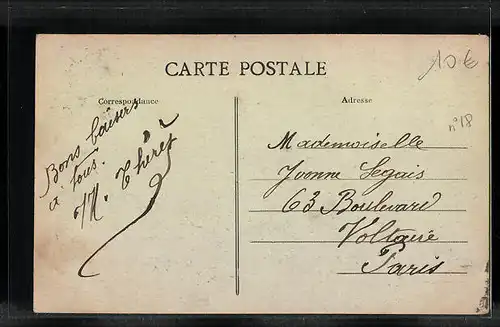 CARTE POSTALE
10€
Correspondance
Adresse
n° 18
Bons baisers
à tous.
M. Thérèz
Mademoiselle
Yvonne Segais
63 Boulevard
Voltaire
Paris